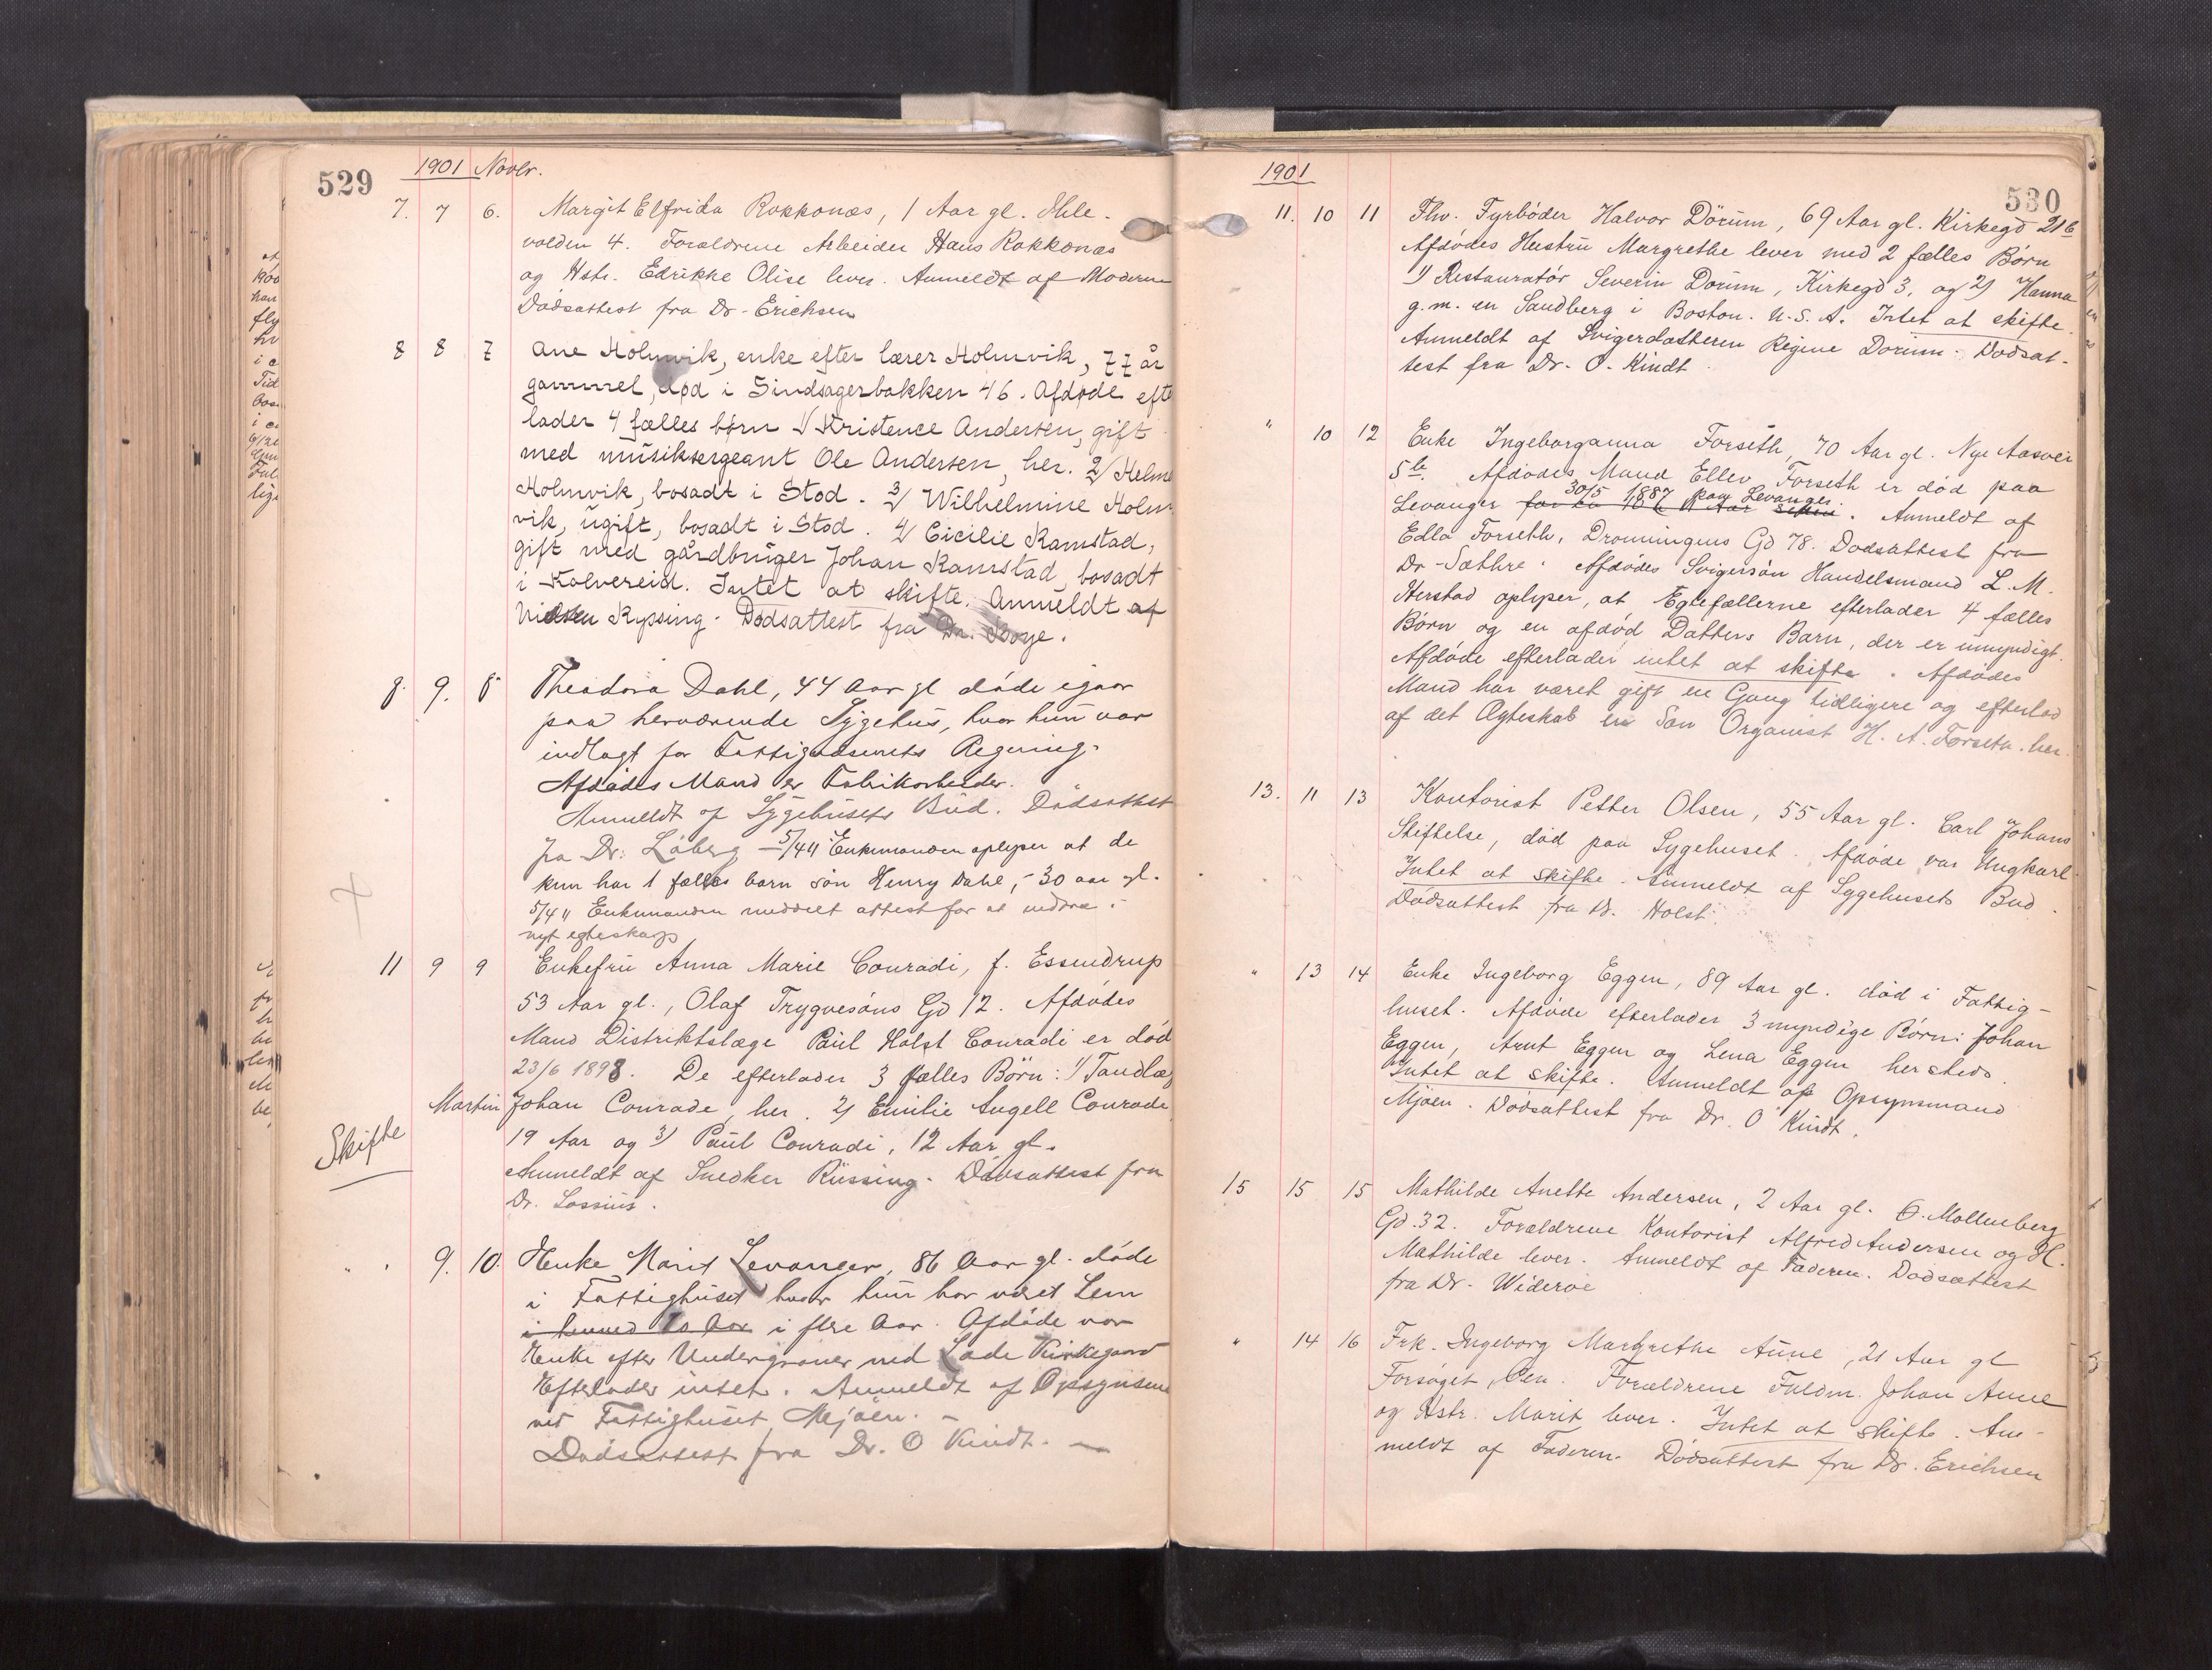 529
1901 Novbr.
7. 7 6. Margit Elfrida Rokkonæs, 1 Aar gl. Ihle-
volden 4. Forældrene Arbeider Hans Rokkonæs
og Hstr. Edrikke Olise lever. Anmeldt af Moderen
Dødsattest fra Dr. Erichsen
8 8 7 Ane Holmvik, enke efter lærer Holmvik, 77 år
gammel, død i Sindsagerbakken 46. Afdøde efte
lader 4 fælles børn 1/ Kristence Andersen, gift
med musiksergeant Ole Andersen, her. 2/ Helme
Holmvik, bosadt i Stod. 3/ Wilhelmine Holm
vik, ugift, bosadt i Stod. 4/ Cicilie Ramstad,
gift med gårdbruger Johan Ramstad, bosadt
i Kolvereid. Intet at skifte. Anmeldt af
Nielsen Rypsing. Dødsattest fra Dr. Boye.
8. 9. 8 Theodora Dahl, 44 Aar gl døde igaar
paa herværende Sygehus, hvor hun var
indlagt for Fattigvæsenets Regning.
Afdødes Mand er Fabrikarbeider.
Anmeldt af Sygehusets Bud. Dødsattest
fra Dr. Løberg — 5/4 11 Enkemanden oplyser at de
kun har 1 fælles barn søn Henry Dahl, 30 aar gl.
5/4 11 Enkemanden meddelt attest for at inddra i
nyt egteskap
11 9 9 Enkefru Anna Marie Conradi, f. Essendrup
53 Aar gl., Olaf Trygvesøns Gd 12. Afdødes
Mand Distriktslæge Paul Holst Conradi er død
23/6 1898. De efterlader 3 fælles Børn: 1) Tandlæg
Martin Johan Conrade, her. 2) Emilie Angell Conrade
19 Aar og 3) Paul Conradi, 12 Aar gl.
Skifte
Anmeldt af Snedker Rüssing. Dødsattest fra
Dr. Lossius.
" " 9. 10. Henke Marit Levanger, 86 Aar gl. døde
i Fattighuset hvor hun har været Lem
i henved 10 Aar i flere Aar. Afdøde var
Henke efter Undergraver ved Lade Kirkegaard
Efterlader intet. Anmeldt af Opsynsm
ved Fattighuset Mjøen. —
Dødsattest fra Dr. O Kindt. —
530
1901
11. 10 11 Fhv. Fyrbøder Halvor Dørum, 69 Aar gl. Kirkegd 21 b
Afdødes Hustru Margrethe lever med 2 fælles Børn
1) Restauratør Severin Dørum, Kirkegd 3, og 2) Hanna
g.m. en Sandberg i Boston. U.S.A. Intet at skifte.
Anmeldt af Svigerdatteren Regine Dørum. Dødsat-
test fra Dr. O. Kindt.
" 10 12 Enke Ingeborganna Forseth, 70 Aar gl. Nye Aasvei
5 b. Afdødes Mand Ellev Forseth er død paa
30/5 1887 paa Levanger
Levanger for ca 18 Aar siden. Anmeldt af
Edla Forseth, Dronningens Gd 78. Dødsattest fra
Dr. Sæthre. Afdødes Svigersøn Handelsmand L. M.
Herstad oplyser, at Egtefællerne efterlader 4 fælles
Børn og en afdød Datters Barn, der er umyndigt.
Afdøde efterlader intet at skifte. Afdødes
Mand har været gift en Gang tidligere og efterlod
af det Ægteskab en Søn Organist H. A. Forseth. her.
13. 11 13 Kontorist Petter Olsen, 55 Aar gl. Carl Johans
Stiftelse, død paa Sygehuset. Afdøde var Ungkarl.
Intet at skifte. Anmeldt af Sygehusets Bud.
Dødsattest fra Dr. Holst.
" 13 14 Enke Ingeborg Eggen, 89 Aar gl. død i Fattig-
huset. Afdøde efterlader 3 myndige Børn: Johan
Eggen, Arnt Eggen og Lena Eggen hersteds.
Intet at skifte. Anmeldt af Opsynsmand
Mjøen. Dødsattest fra Dr. O Kindt.
15 15 15 Mathilde Anette Andersen, 2 Aar gl. Ø. Mollenberg
Gd. 32. Forældrene Kontorist Alfred Andersen og H.
Mathilde lever. Anmeldt af Faderen. Dødsattest
fra Dr. Widerøe
" 14 16 Frk. Ingeborg Margrethe Aune, 21 Aar gl
Forsøget, Øen. Forældrene Fuldm. Johan Aune
og Hstr. Marit lever. Intet at skifte. An-
meldt af Faderen. Dødsattest fra Dr. Erichsen